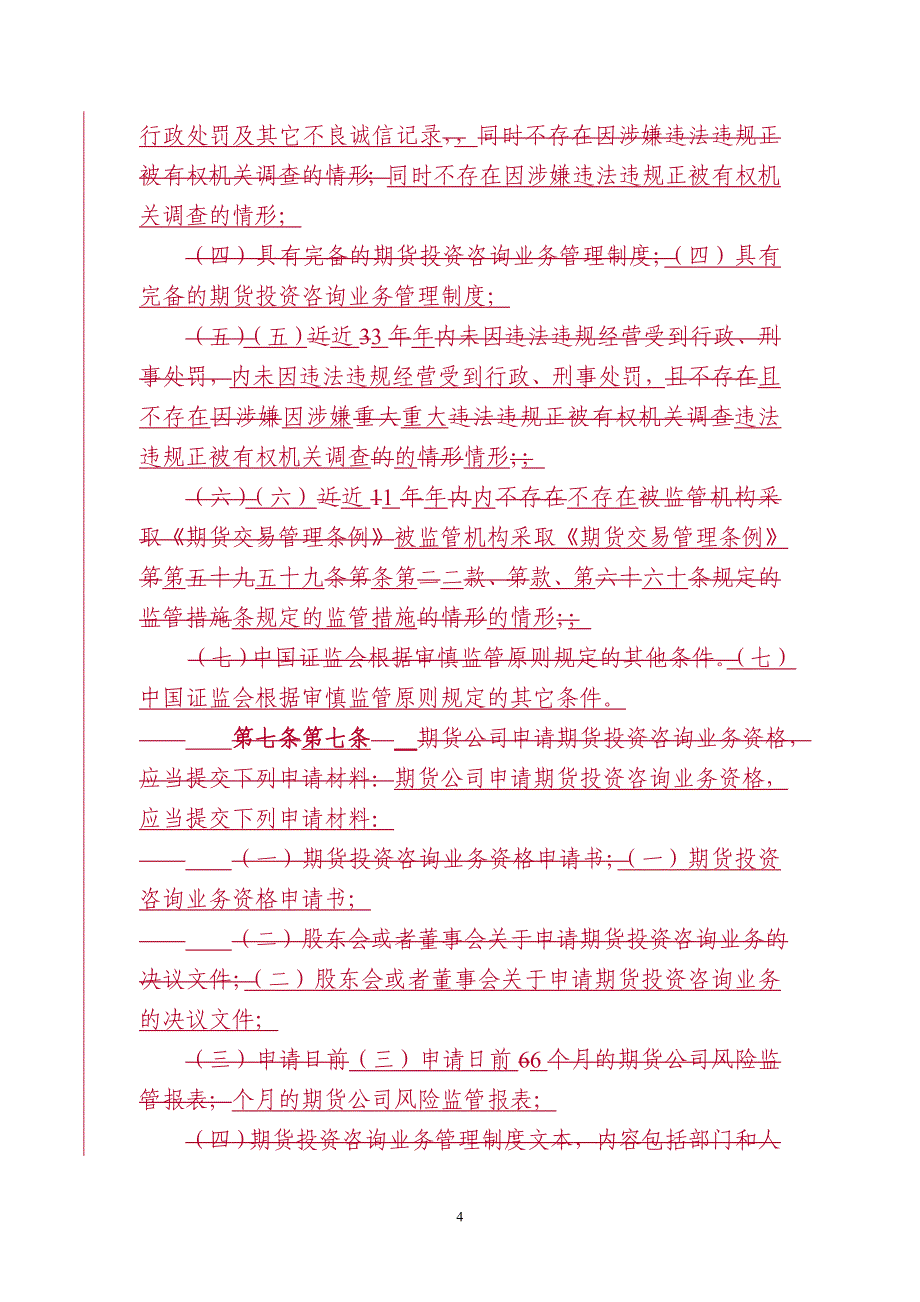 行政处罚及其它不良诚信记录，，同时不存在因涉嫌违法违规正
被有权机关调查的情形；同时不存在因涉嫌违法违规正被有权机
关调查的情形；
（四）具有完备的期货投资咨询业务管理制度；（四）具有
完备的期货投资咨询业务管理制度；
（五）（五）近近 33 年年内未因违法违规经营受到行政、刑
事处罚，内未因违法违规经营受到行政、刑事处罚，且不存在且
不存在因涉嫌因涉嫌重大重大违法违规正被有权机关调查违法
违规正被有权机关调查的的情形情形；；
（六）（六）近近 11 年年内内不存在不存在被监管机构采
取《期货交易管理条例》被监管机构采取《期货交易管理条例》
第第五十九五十九条第条第二二款、第款、第六十六十条规定的
监管措施条规定的监管措施的情形的情形；；
（七）中国证监会根据审慎监管原则规定的其他条件。（七）
中国证监会根据审慎监管原则规定的其它条件。
第七条第七条 期货公司申请期货投资咨询业务资格，
应当提交下列申请材料：期货公司申请期货投资咨询业务资格，
应当提交下列申请材料：
（一）期货投资咨询业务资格申请书；（一）期货投资
咨询业务资格申请书；
（二）股东会或者董事会关于申请期货投资咨询业务的
决议文件；（二）股东会或者董事会关于申请期货投资咨询业务
的决议文件；
（三）申请日前（三）申请日前 66 个月的期货公司风险监
管报表；个月的期货公司风险监管报表；
（四）期货投资咨询业务管理制度文本，内容包括部门和人
4